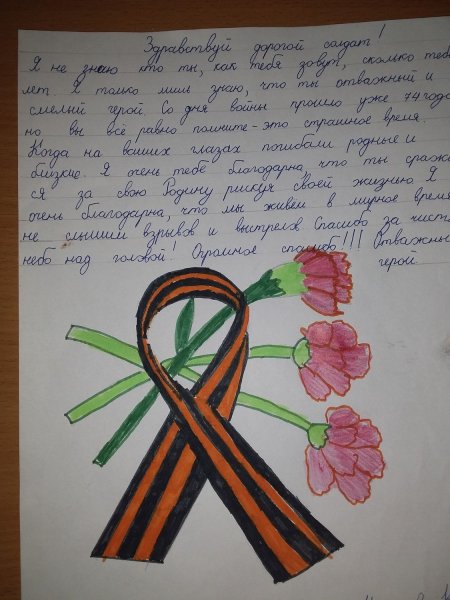 Здравствуй дорогой солдат!
Я не знаю кто ты, как тебя зовут, сколько тебе
лет. Я только лишь знаю, что ты отважный и
смелый герой. Со дня войны прошло уже 74 года
но вы всё равно помните - это страшное время.
Когда на ваших глазах погибали родные и
близкие. Я очень тебе благодарна, что ты сражал
ся за свою Родину рискуя своей жизнью. Я
очень благодарна, что мы живём в мирное время
не слышим взрывов и выстрелов Спасибо за чист
небо над головой! Огромное спасибо!!! Отважный
герой